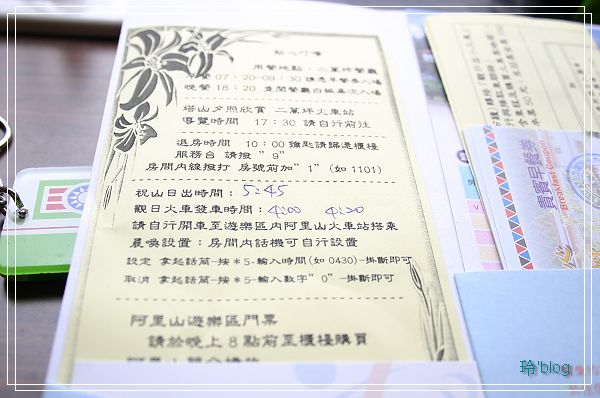 貼心叮嚀
用餐地點：二萬坪餐廳
早餐 07：20-09：30 請憑早餐券入場
晚餐 18：20 查閱餐廳白板桌次入場
塔山夕照欣賞 二萬坪火車站
導覽時間 17：30 請自行前往
退房時間 10：00 鑰匙請歸還櫃檯
服務台 請撥 "9"
房間內線撥打 房號前加"1"(如 1101)
祝山日出時間：5:45
觀日火車發車時間：4:00 4:20
請自行開車至遊樂區內阿里山火車站搭乘
晨喚設置：房間內話機可自行設置
設定 拿起話筒-按＊5-輸入時間(如 0430)-掛斷即可
取消 拿起話筒-按＊5-輸入數字"0"-掛斷即可
阿里山遊樂區門票
請於晚上 8 點前至櫃檯購買
貴賓早餐券
Breakfast Coupon
玲'blog